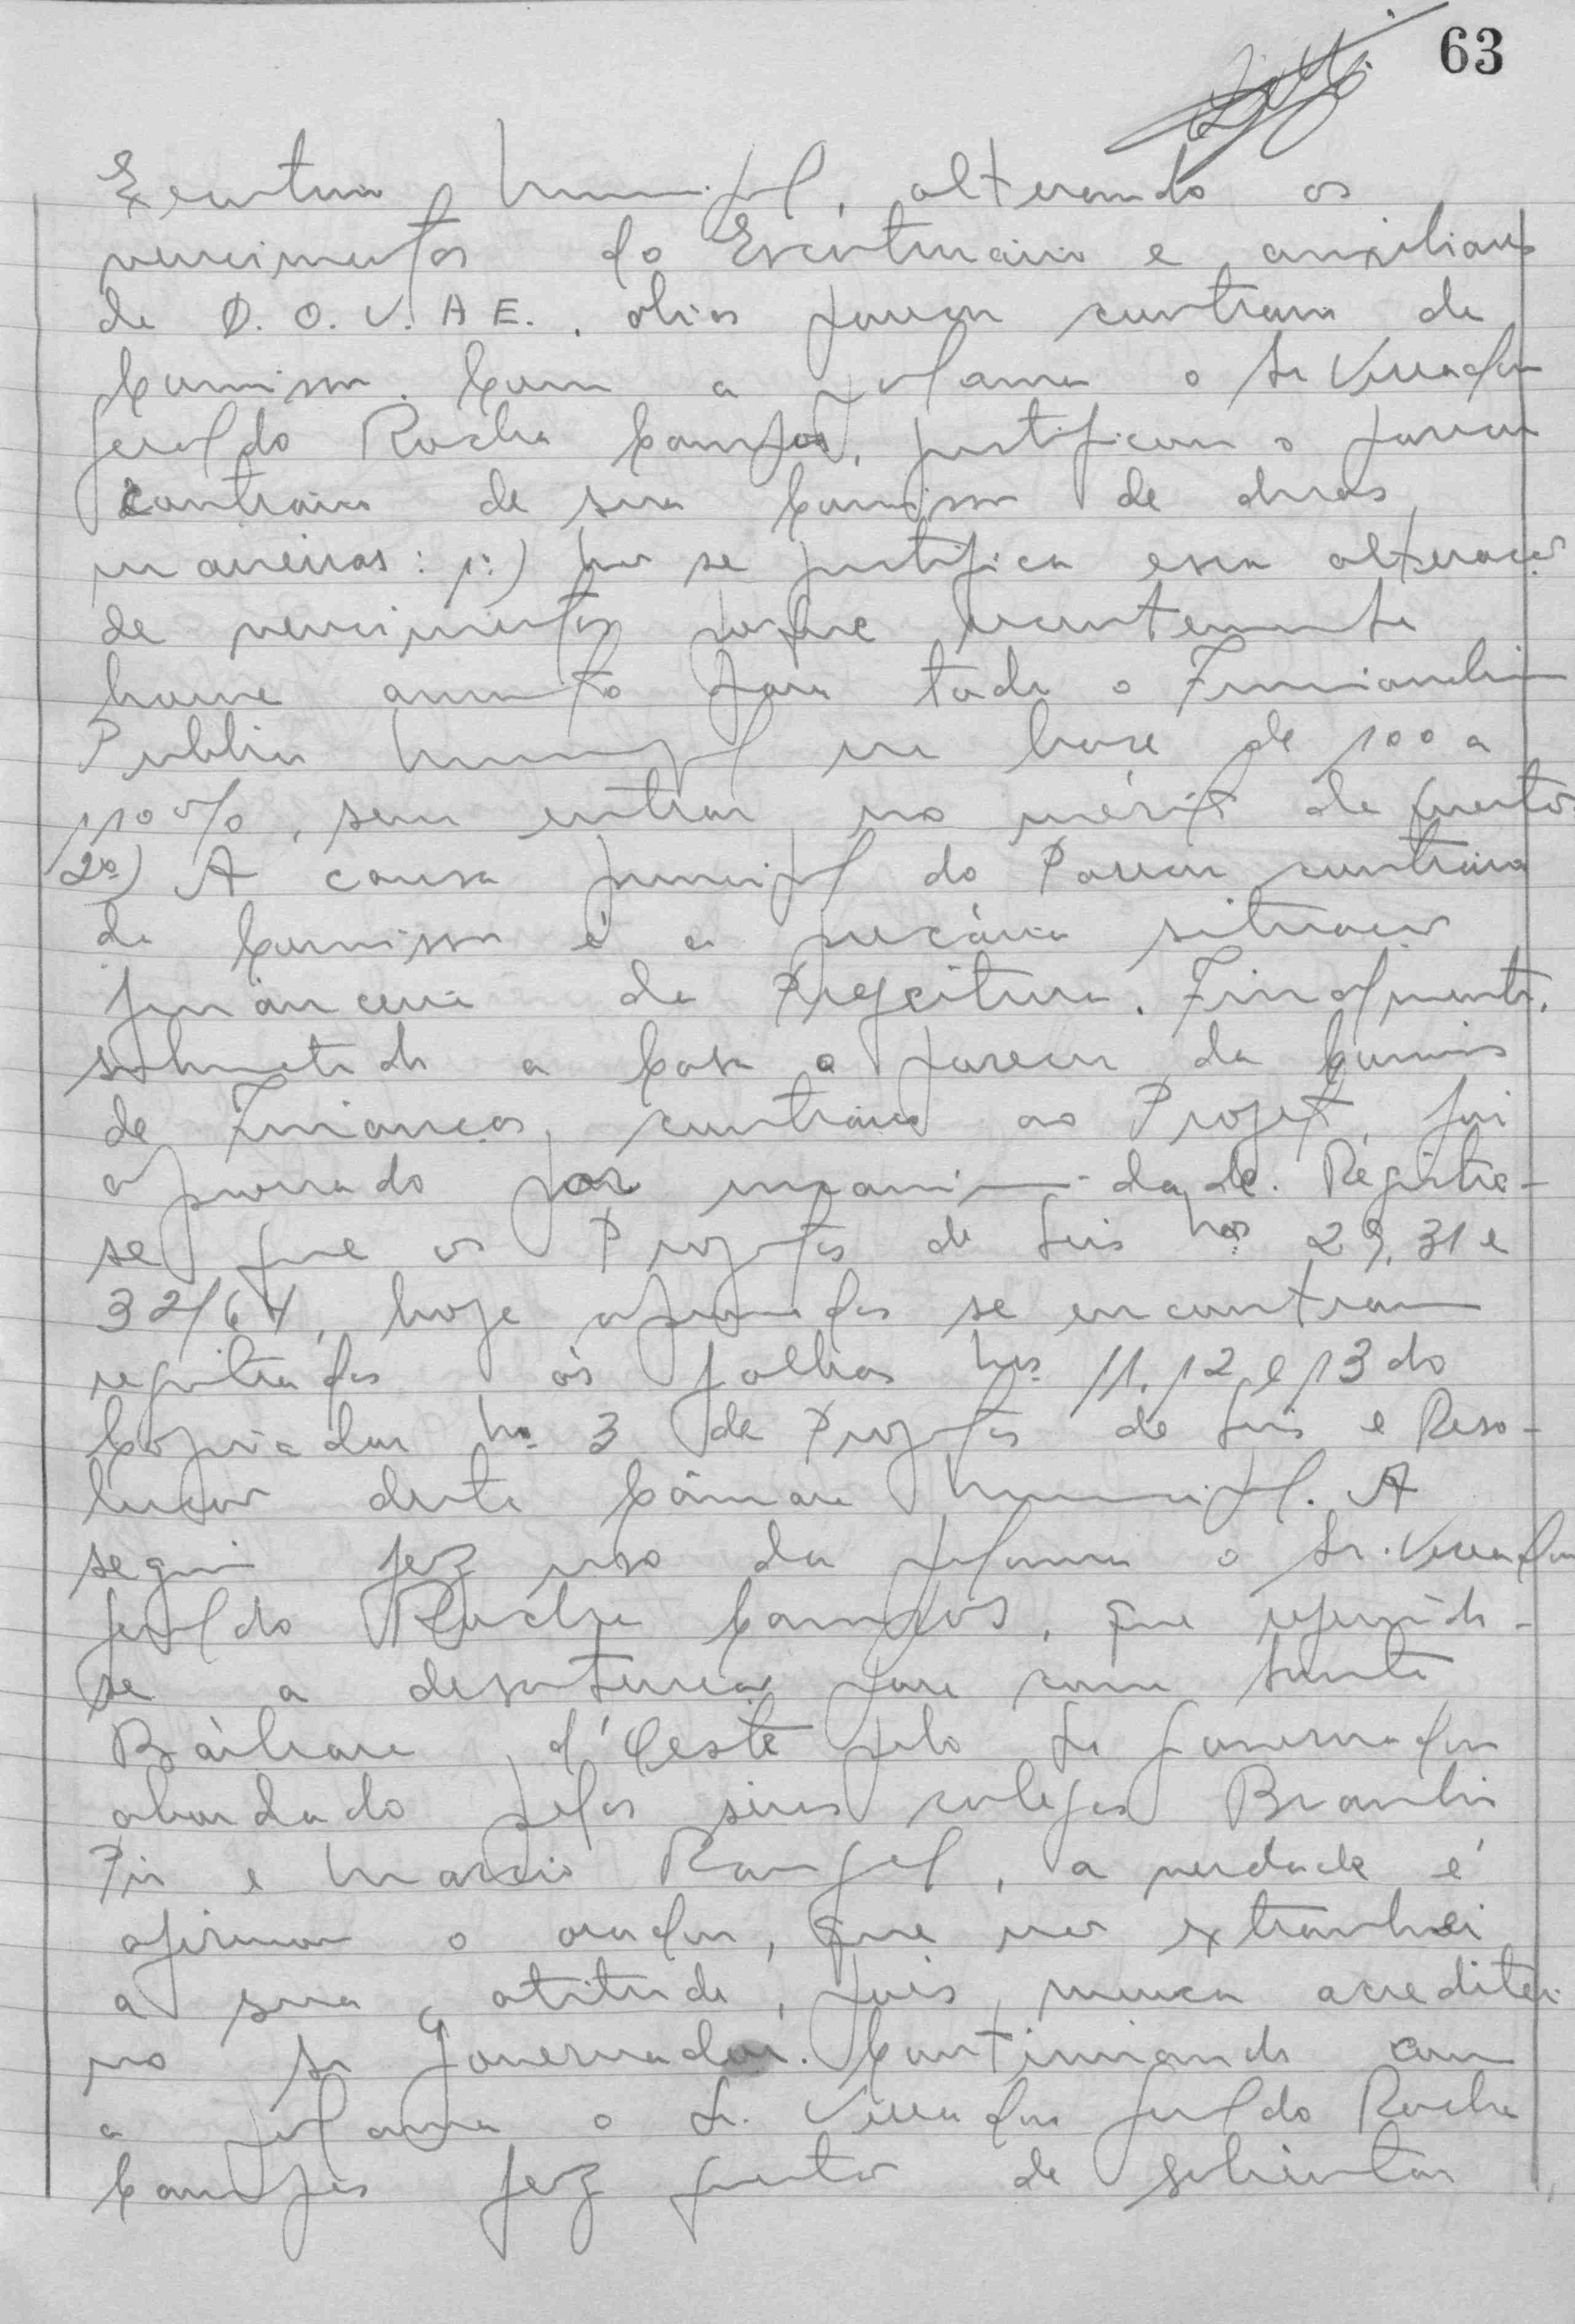 63
Executivo Municipal, alterando os
vencimentos do Escriturário e auxiliares
de D. O. V. A E., aliás parecer contrario da
Comissão. Com a palavra o Sr Vereador
Geraldo Rocha Campos, justificou o parecer
contrario de sua Comissão de duas
maneiras: 1º) Não se justifica essa alteração
de vencimentos porque recentemente
houve aumento para todo o Funcionalismo
Publico Municipal na base de 100 a
110%, sem entrar no mérito da questão.
2º) A causa principal do Parecer contrário
da Comissão é a precária situação
financeira da Prefeitura. Finalmente,
submetido a Casa o parecer da Comissão
de Finanças, contrário ao Projeto, foi
aprovado por unanimidade. Registre-
se que os Projetos de Leis Nos 29, 31 e
32/64, hoje aprovados se encontram
registrados às folhas Nos 11, 12 e 13 do
Copiador Nº 3 de Projetos de Leis e Reso-
luções desta Câmara Municipal. A
seguir fez uso da palavra o Sr. Vereador
Geraldo Rocha Campos, que referindo-
se a desatenção para com Santa
Bárbara d'Oeste pelo Sr Governador
abordado pelos seus colegas Braulio
Pio e Marcio Rangel, a verdade é
afirmou o orador, que não extranhei
a sua atitude, pois, nunca acreditei
no Sr Governador. Continuando com
a palavra o Sr. Vereador Geraldo Rocha
Campos fez questão de salientar,